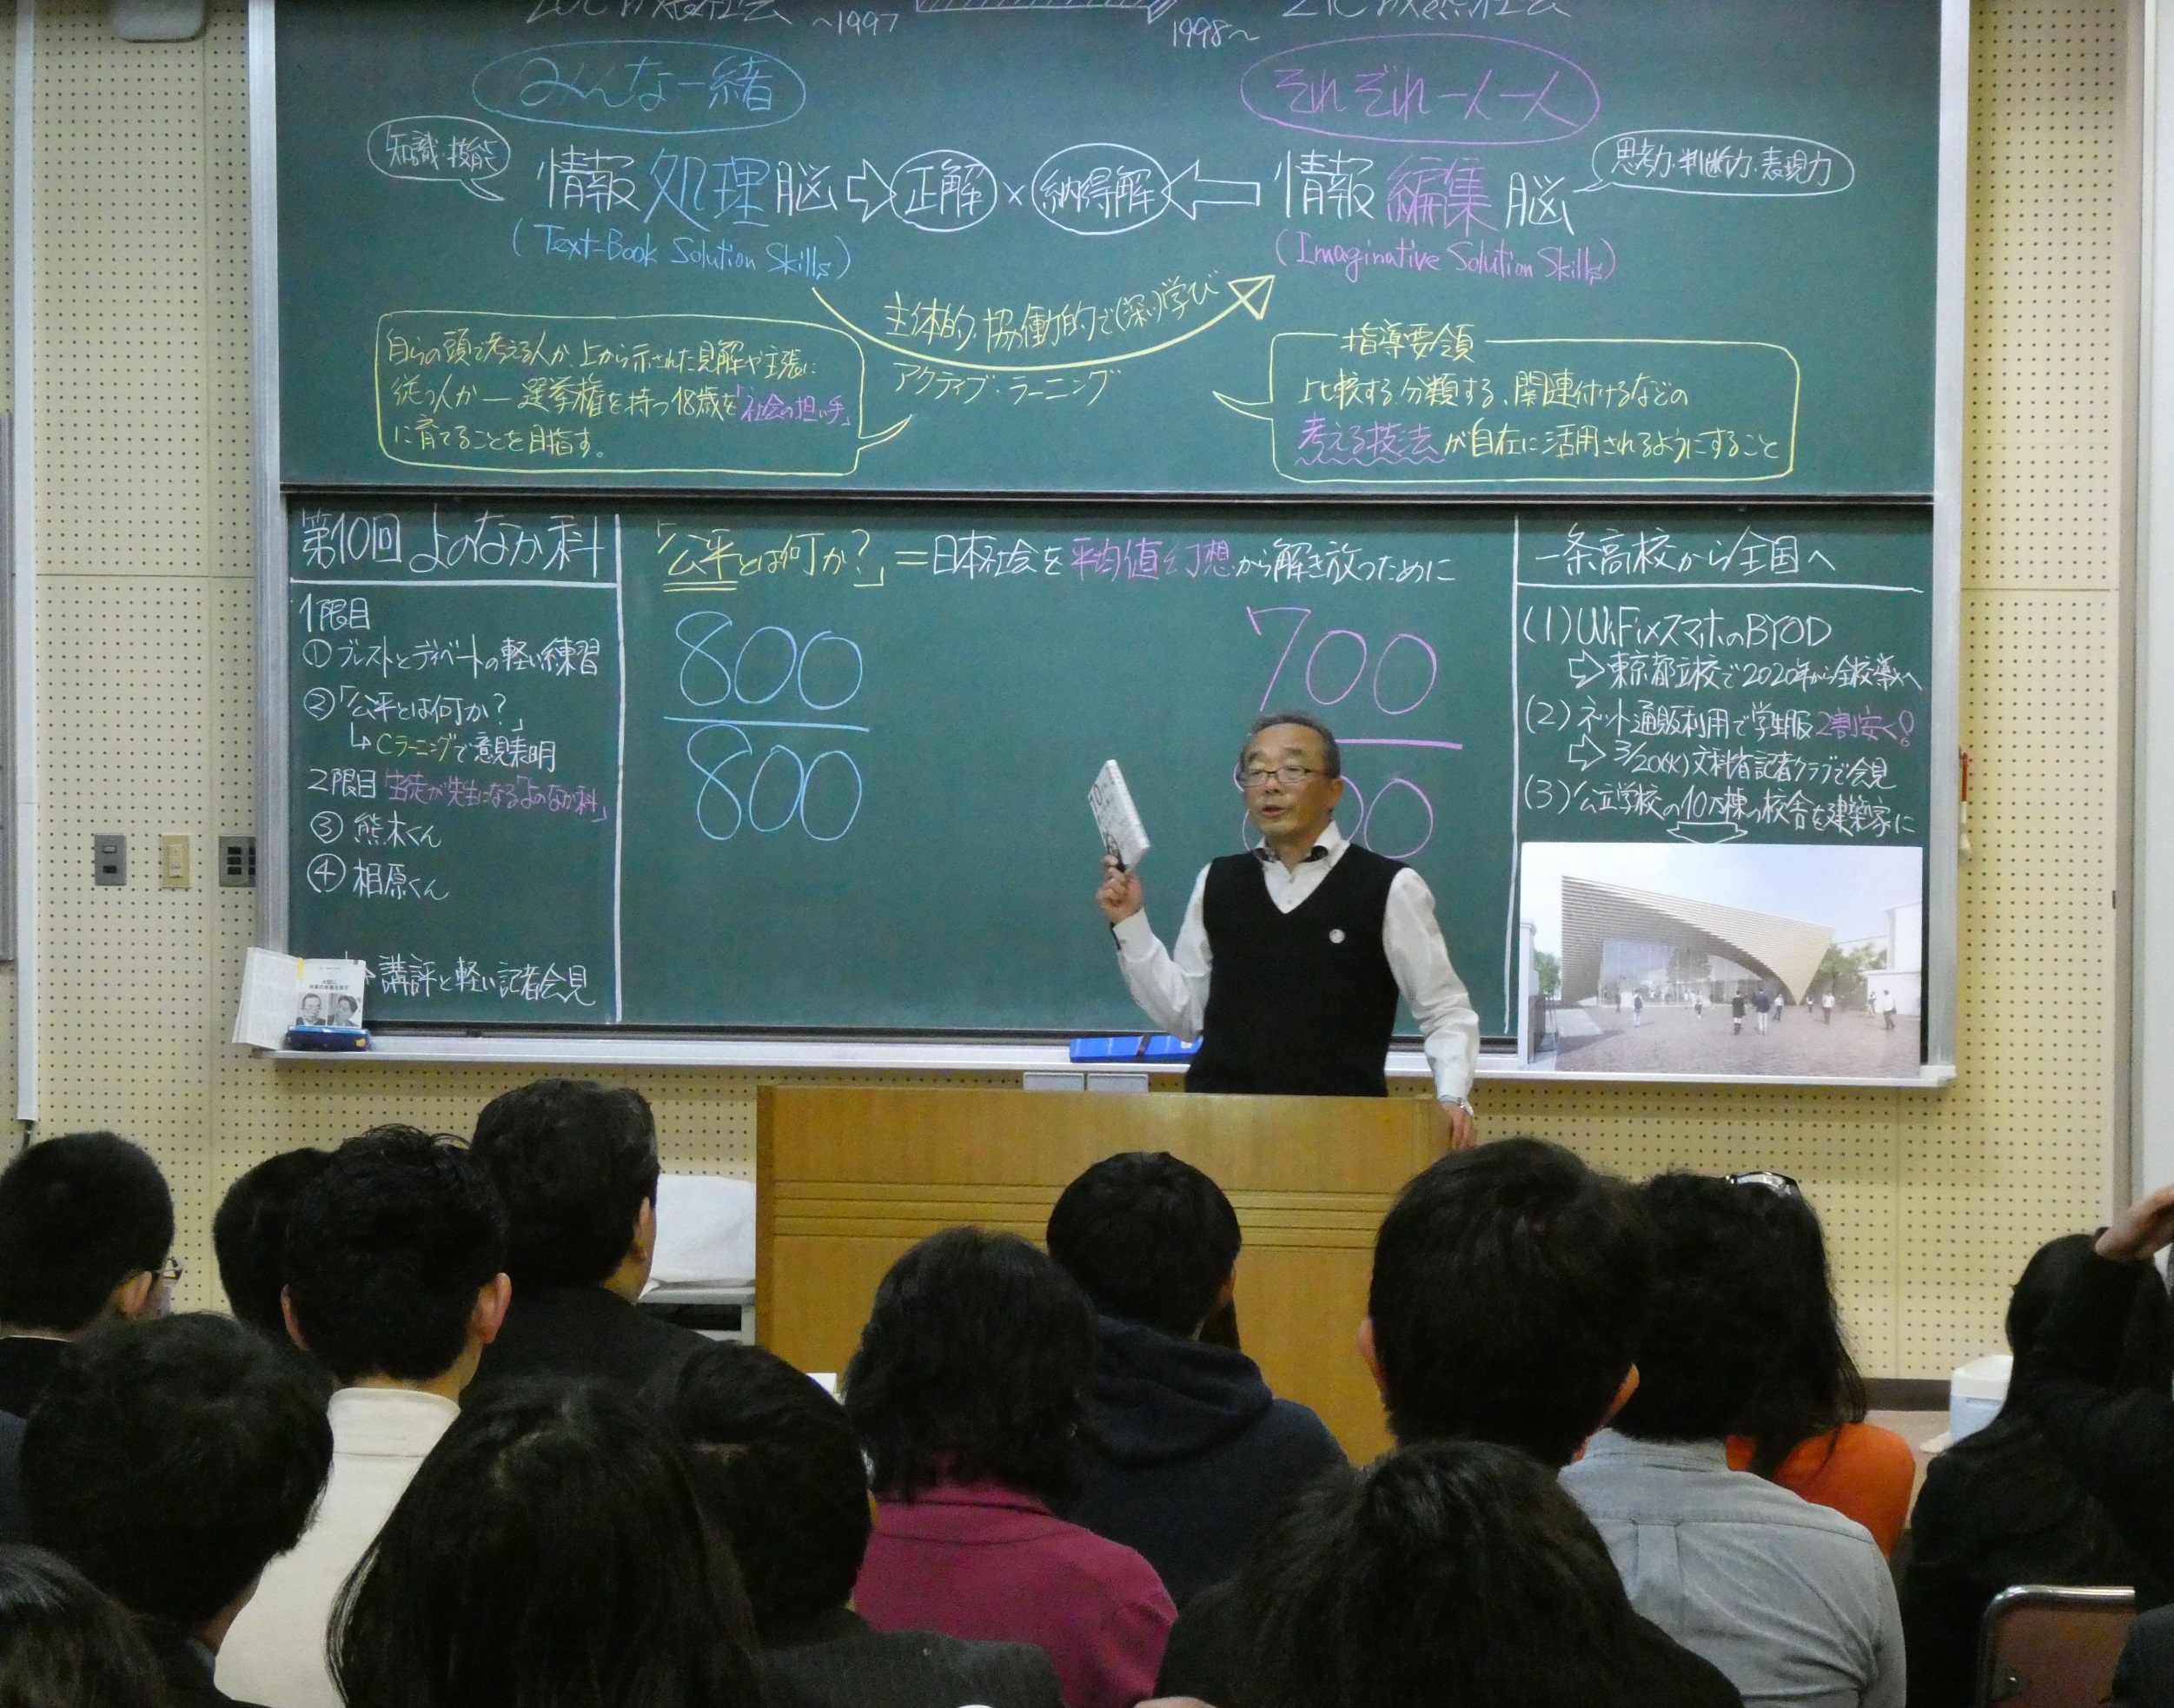 ~1997
1998~
みんな一緒
それぞれ一人一人
知識・技能
情報処理脳 ⇨ 正解 × 納得解 ⇦ 情報編集脳
思考力・判断力・表現力
(Text=Book Solution Skills)
(Imaginative Solution Skills)
主体的・協働的で(深い)学び
アクティブ・ラーニング
自らの頭で考える人か、上から示された見解や主張に
従う人か — 選挙権を持つ18歳を「社会の担い手」
に育てることを目指す。
指導要領
比較する、分類する、関連付けるなどの
考える技法が自在に活用されるようにすること
第10回 よのなか科
1限目
① ブレストとディベートの軽い練習
②「公平とは何か?」
↳ Cラーニングで意見表明
2限目 生徒が先生になる「よのなか科」
③ 熊木くん
④ 相原くん
講評と軽い記者会見
「公平とは何か?」=日本社会を平均値幻想から解き放つために
800
800
700
00
一条高校から全国へ
(1) WiFi×スマホのBYOD
⇨ 東京都立校で2020年から全校導入へ
(2) ネット通販利用で学生服2割安く!
⇨ 3/20(火)文科省記者クラブで会見
(3) 公立学校の10万棟の校舎を建築家に